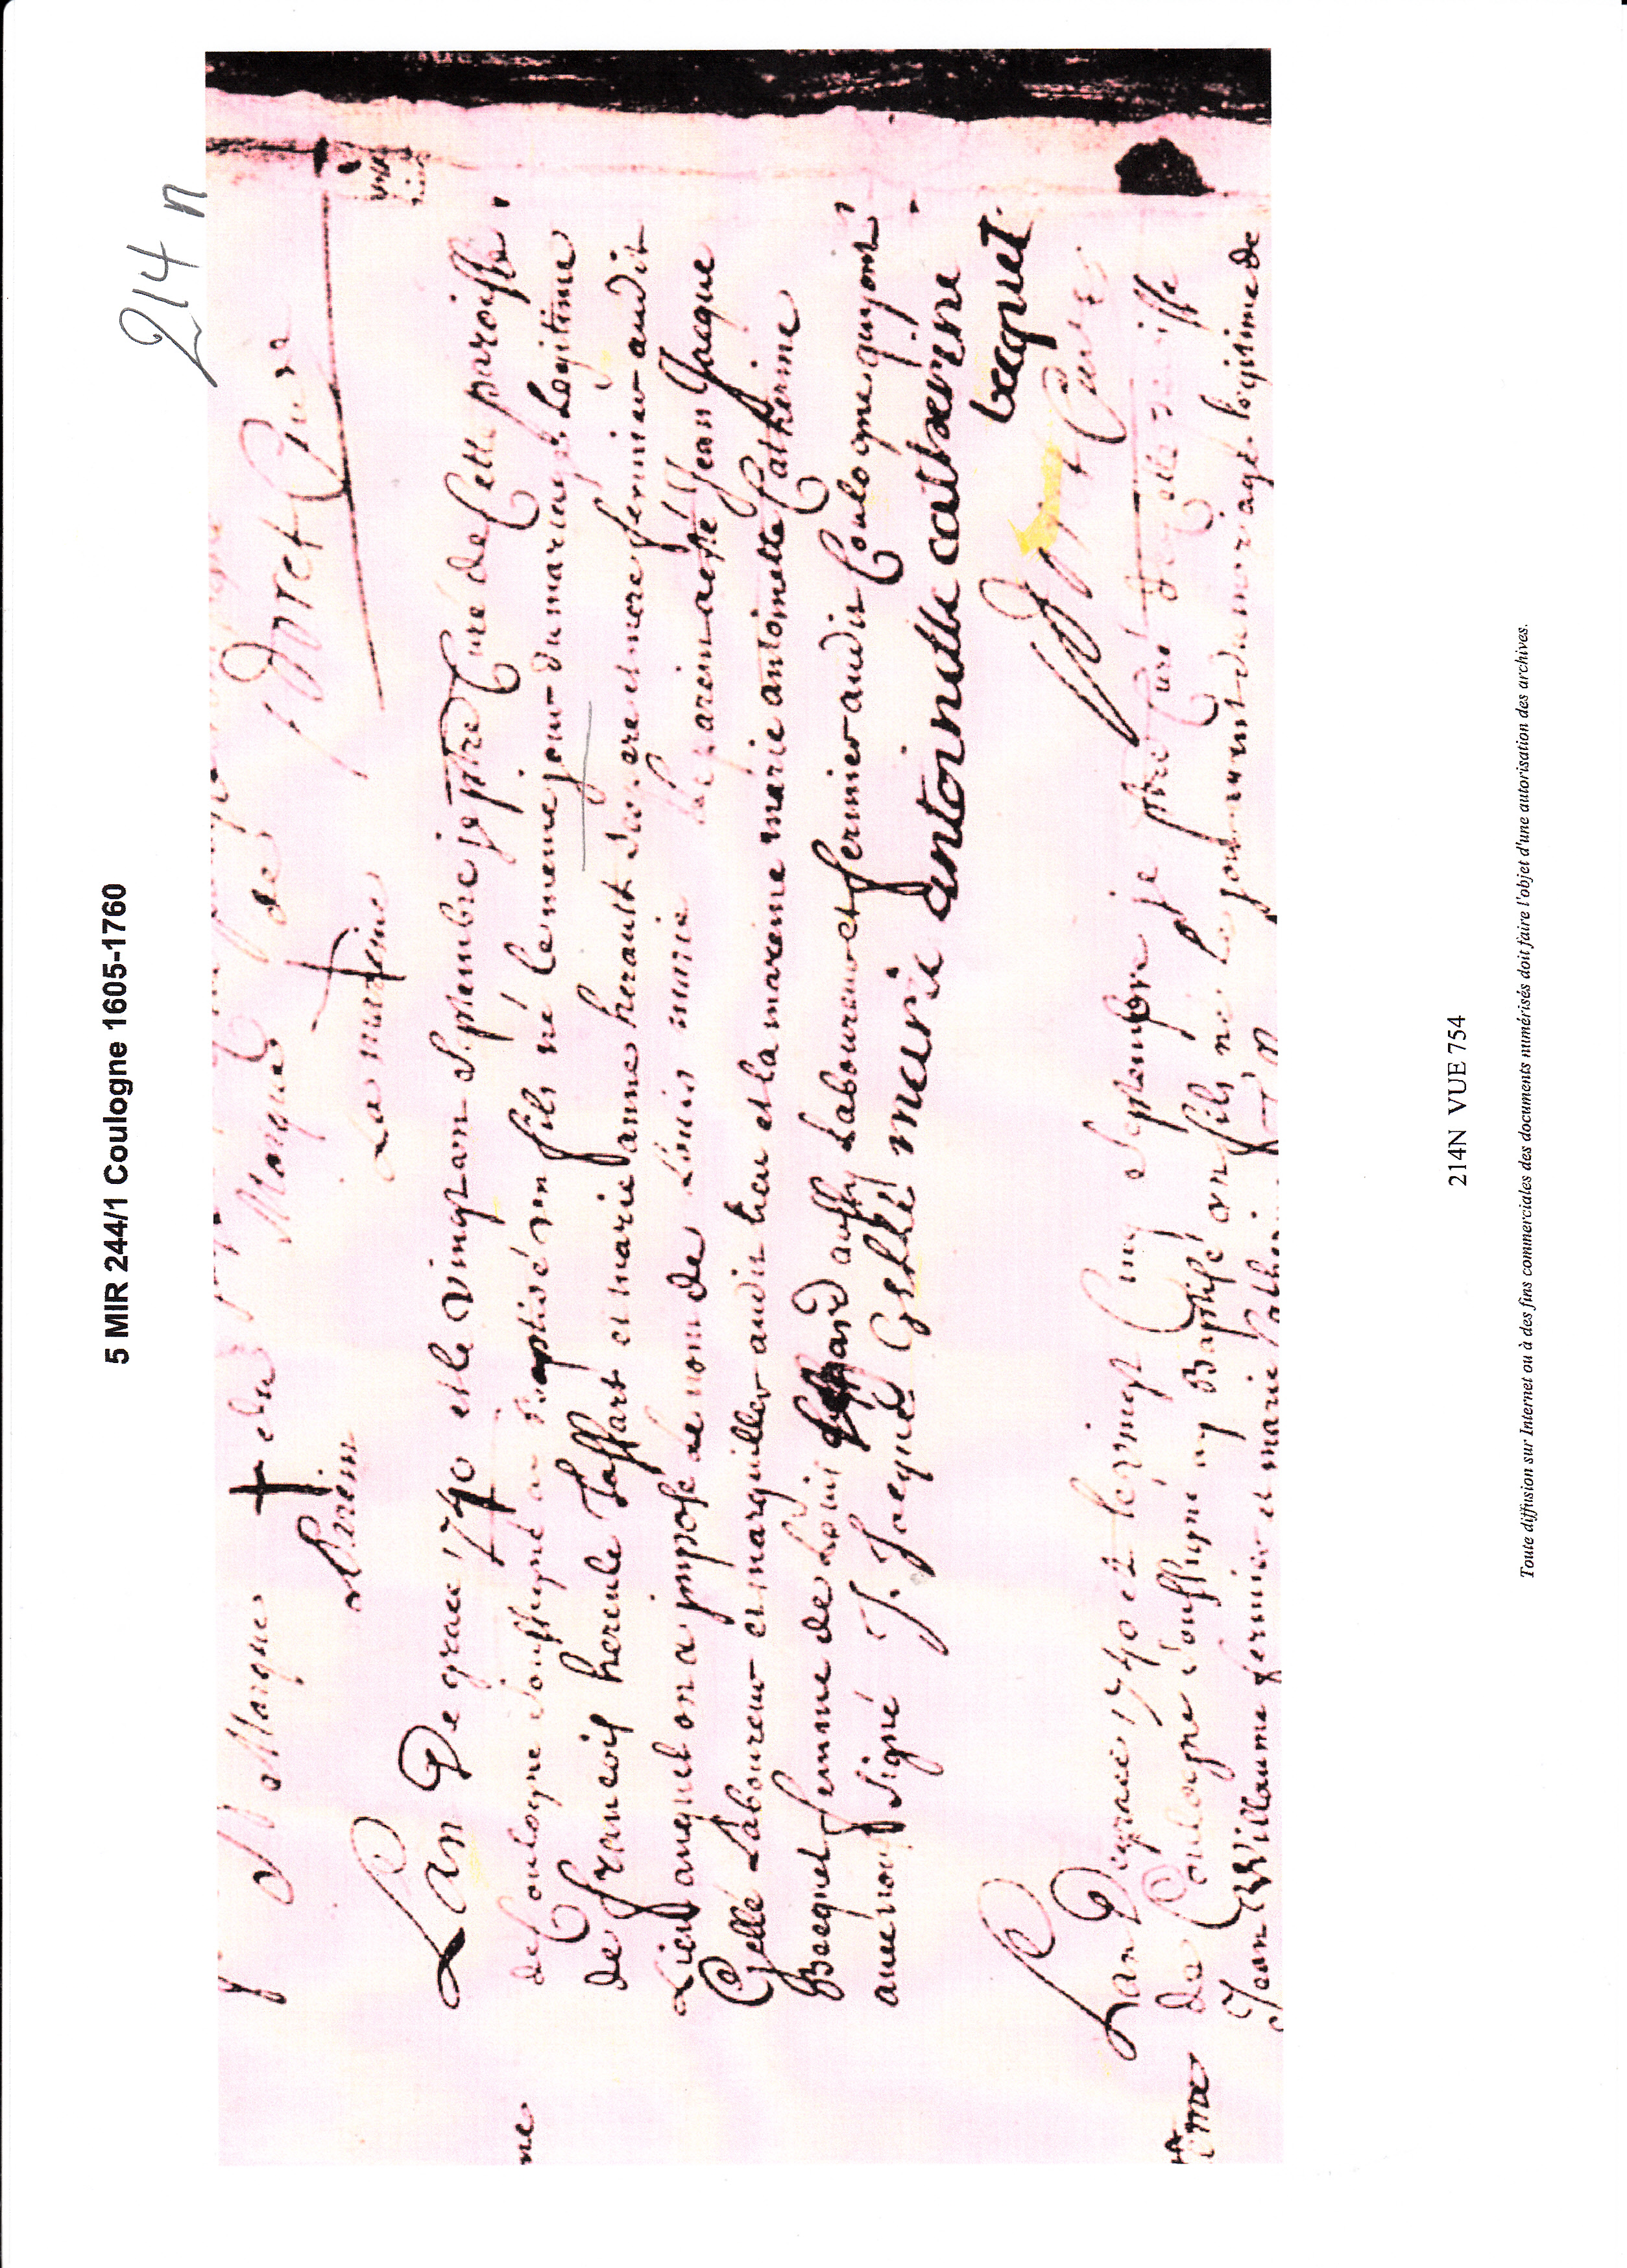 5 MIR 244/1 Coulogne 1605-1760
214 n
Marque de
Marque de
Doret Curé
Parein
La mareine
ne
Lan De grace 1740 et le vingt un Septembre je ptre Curé de Cette paroisse
de Coulogne soussigné ai Baptisé un fils né le meme jour du mariage Legitime
de francois hercule Taffart et marie anne herault ses pere et mere fermier audit
Lieu auquel on a imposé le nom de Louis marie Le parein a esté Jean Jacque
Gellé Laboureur et marguiller audit lieu et la mareine marie antoinette Catherine
Becquet femme de Louis aussy Laboureur et fermier audit Coulogne qui ont
avec nous signé J. Jacque Gellé marie antoinette catherine
becquet
Doret Curé
Lan De grace 1740 et le vingt Cinq Septembre je ptre Curé de Cette paroisse
de Coulogne soussigné ay Baptisé un fils né le jour du mariage legitime de
Jean Willaume fermier et marie
214N VUE 754
Toute diffusion sur Internet ou à des fins commerciales des documents numérisés doit faire l'objet d'une autorisation des archives.